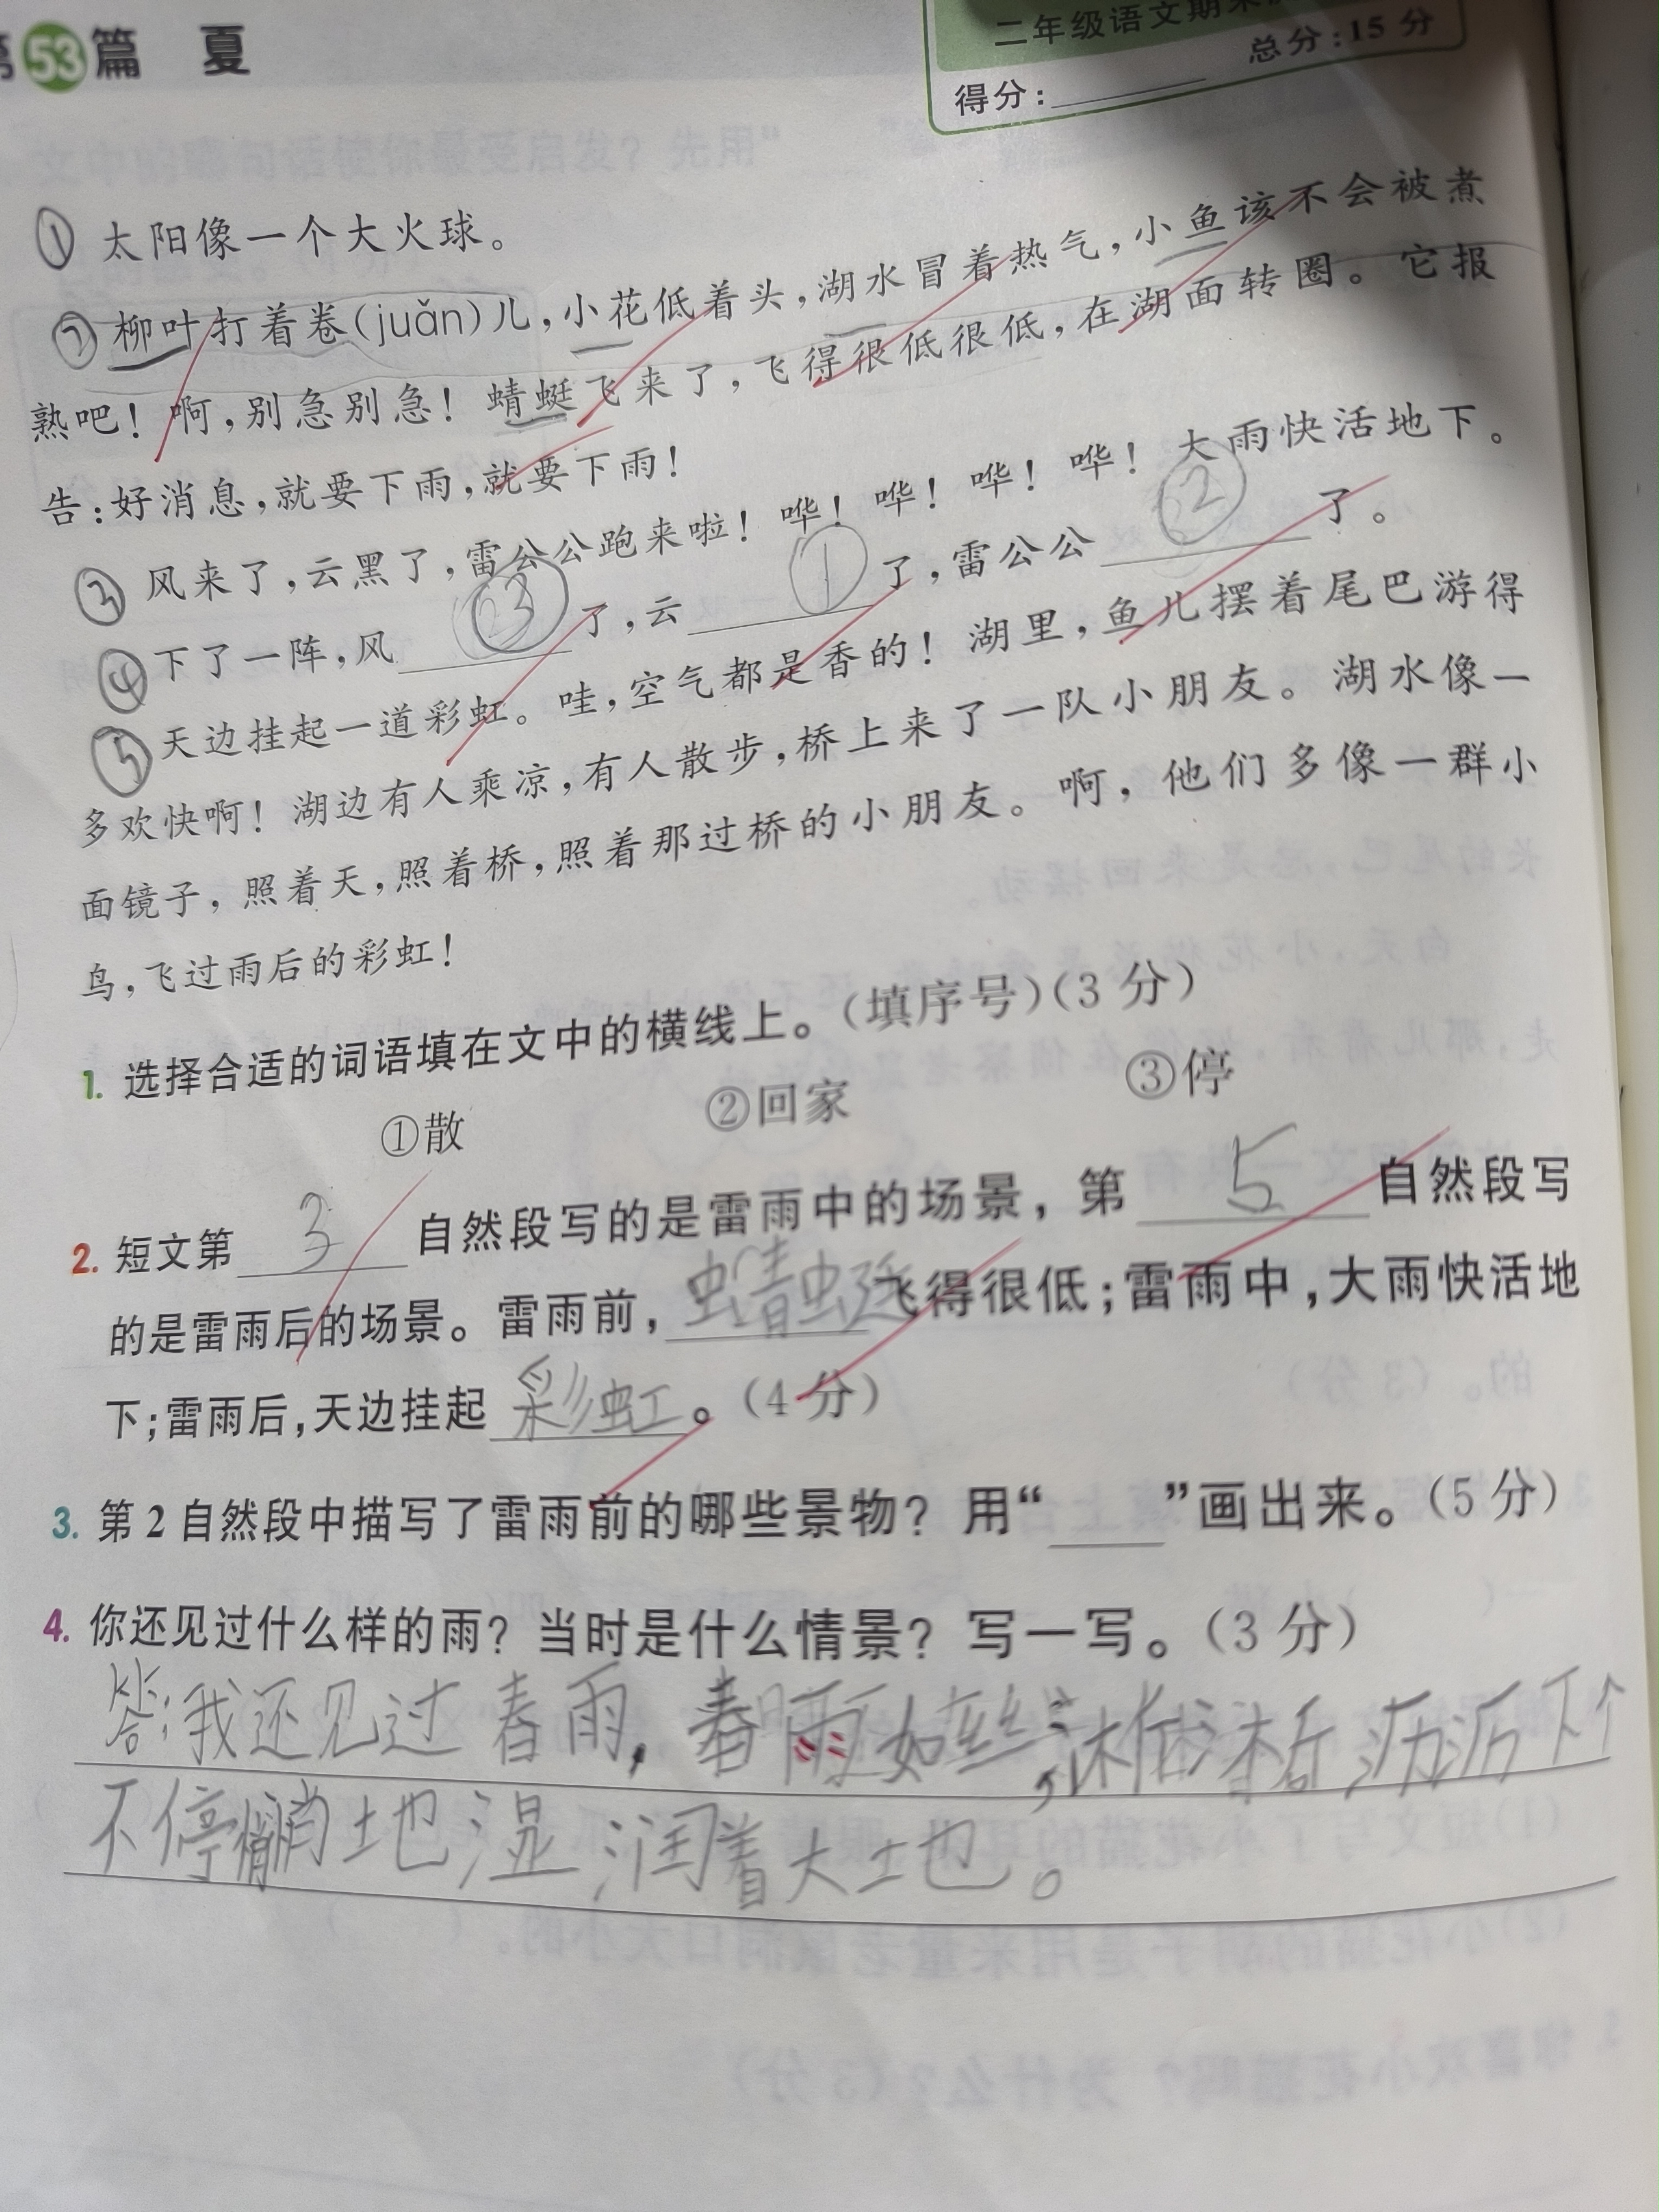 第53篇 夏
二年级语文期末
总分:15 分
得分:
① 太阳像一个大火球。
② 柳叶打着卷(juǎn)儿,小花低着头,湖水冒着热气,小鱼该不会被煮
熟吧！啊,别急别急！蜻蜓飞来了,飞得很低很低,在湖面转圈。它报
告:好消息,就要下雨,就要下雨！
③ 风来了,云黑了,雷公公跑来啦！哗！哗！哗！哗！大雨快活地下。
④ 下了一阵,风 ③ 了,云 ① 了,雷公公 ② 了。
⑤ 天边挂起一道彩虹。哇,空气都是香的！湖里,鱼儿摆着尾巴游得
多欢快啊！湖边有人乘凉,有人散步,桥上来了一队小朋友。湖水像一
面镜子,照着天,照着桥,照着那过桥的小朋友。啊,他们多像一群小
鸟,飞过雨后的彩虹！
1. 选择合适的词语填在文中的横线上。(填序号)(3 分)
①散 ②回家 ③停
2. 短文第 3 自然段写的是雷雨中的场景,第 5 自然段写
的是雷雨后的场景。雷雨前,蜻蜓飞得很低;雷雨中,大雨快活地
下;雷雨后,天边挂起彩虹。(4 分)
3. 第 2 自然段中描写了雷雨前的哪些景物？用“ ”画出来。(5 分)
4. 你还见过什么样的雨？当时是什么情景？写一写。(3 分)
答:我还见过春雨,春雨如丝,淅沥沥下个
不停悄悄地湿润着大土地。